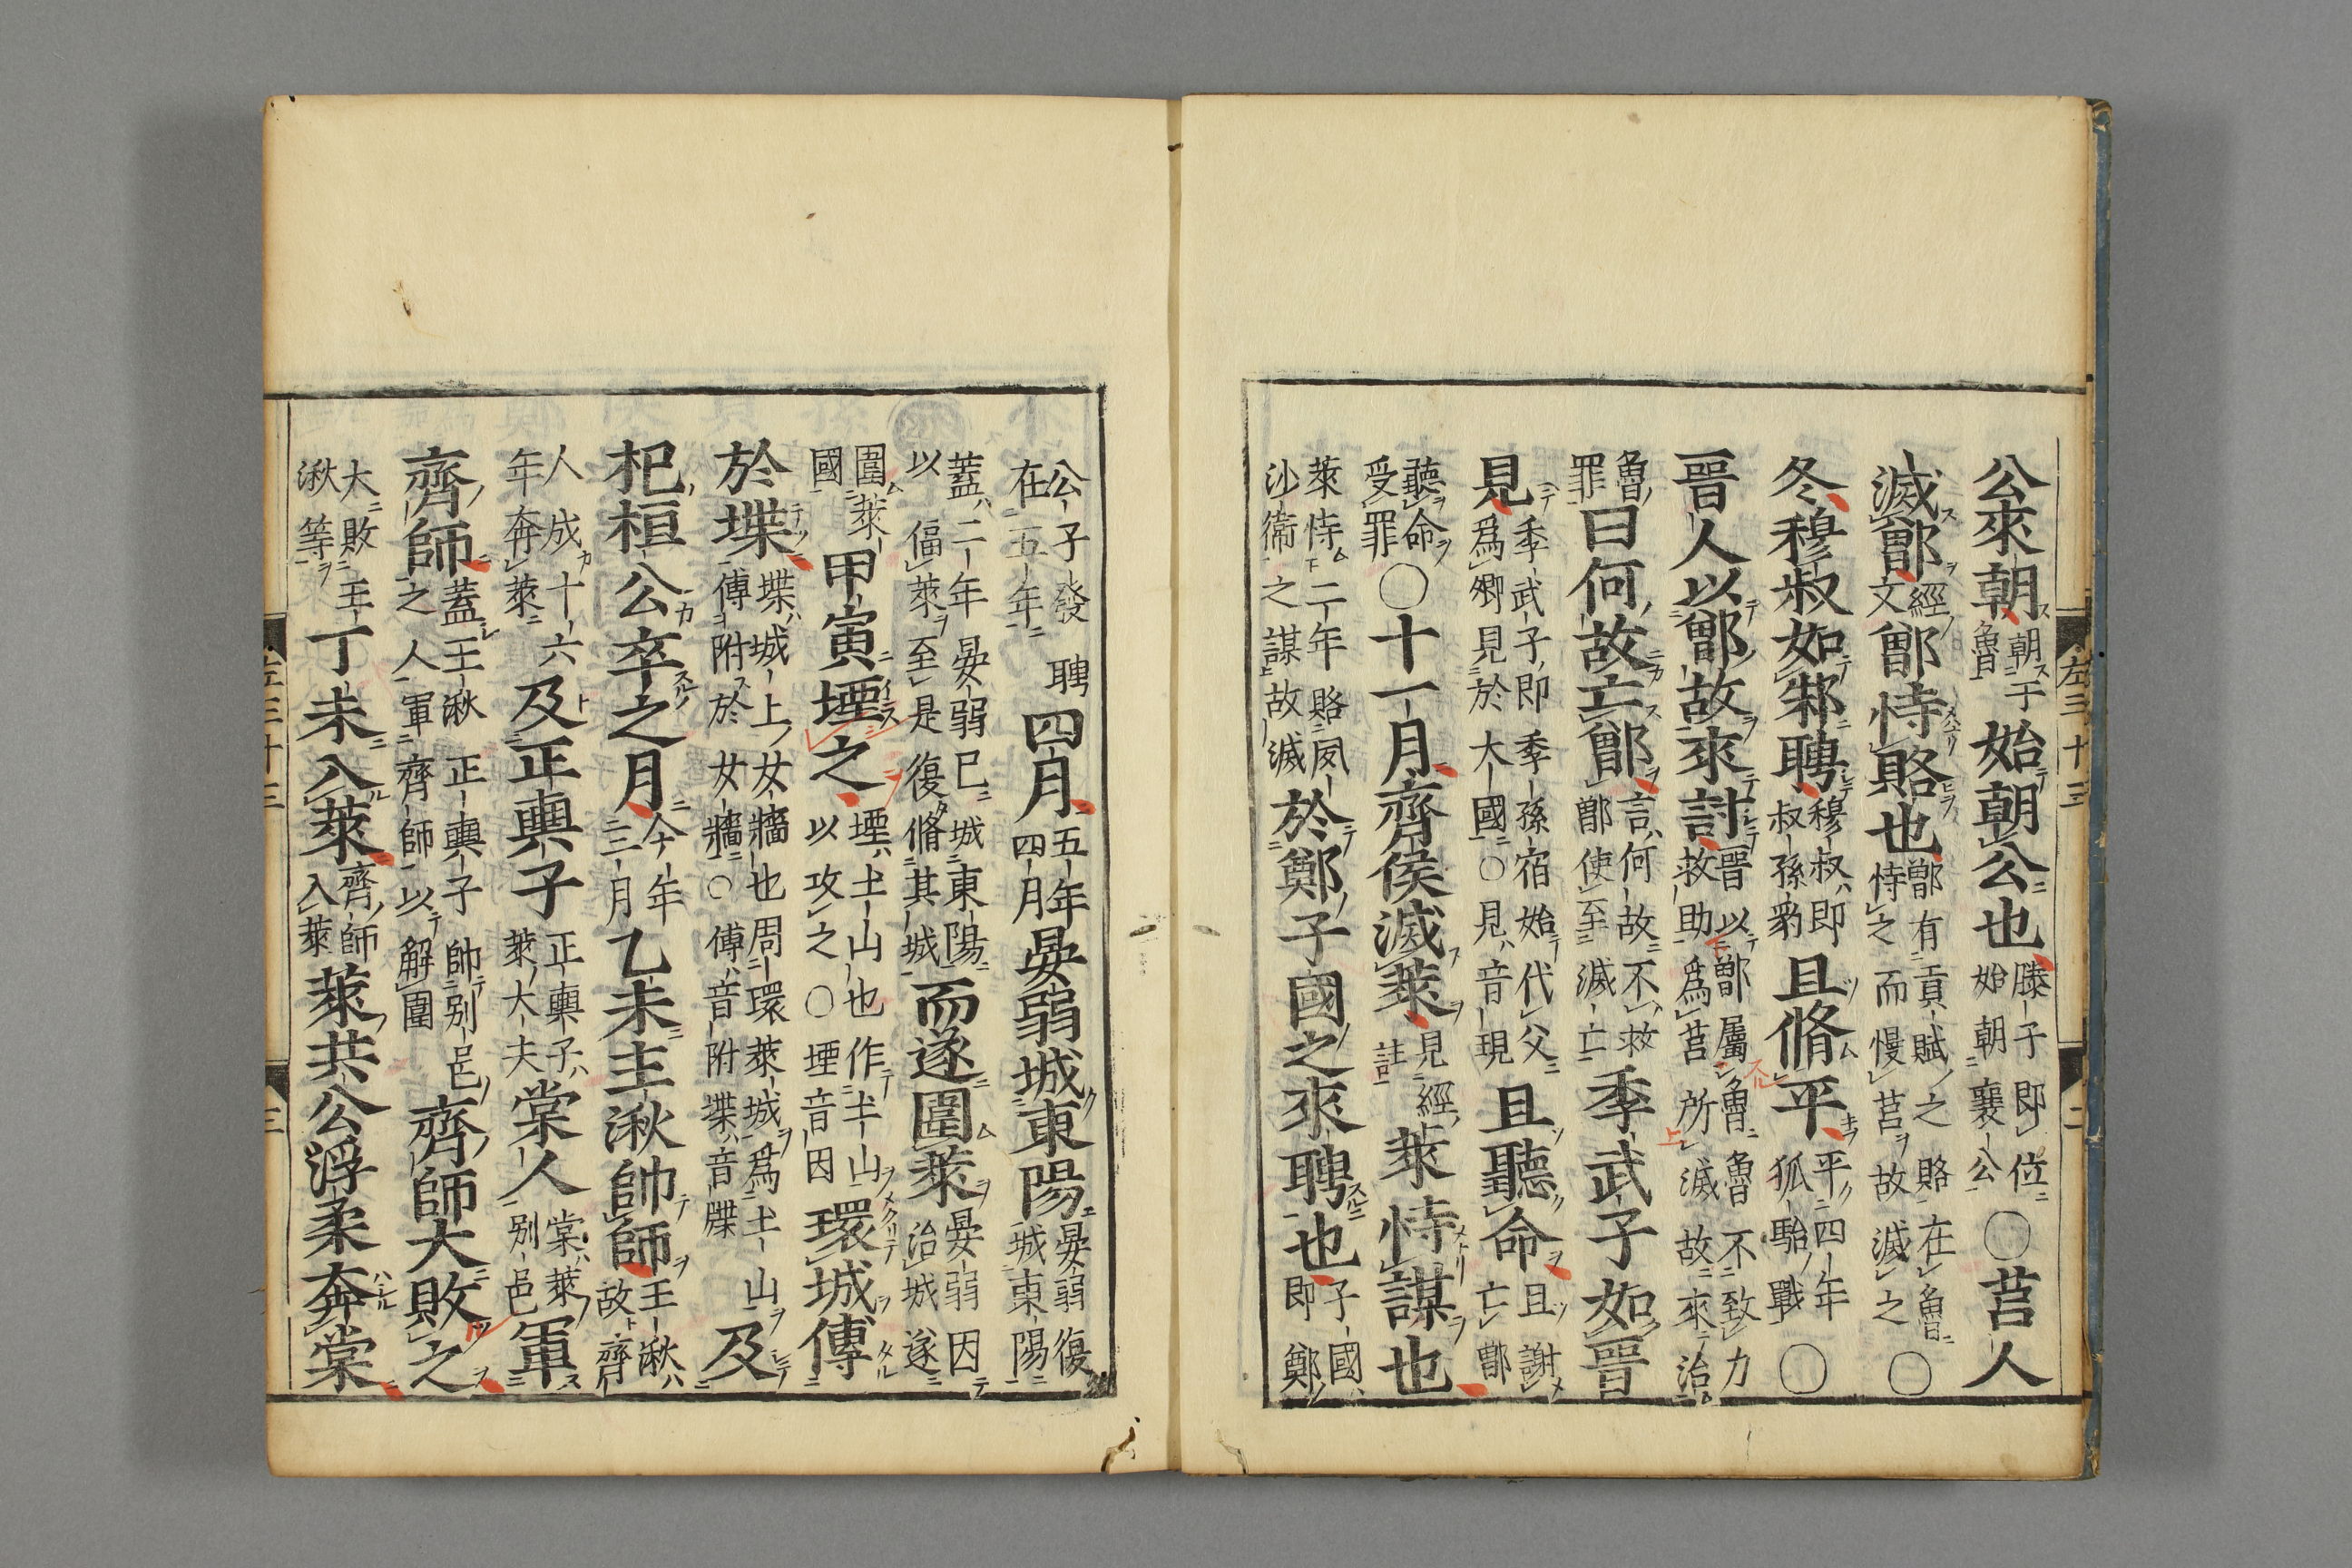 左三十三 二
公來朝朝于魯始朝公也滕子即位始朝襄公○莒人
滅鄫經文鄫恃賂也鄫有貢賦之賂在魯恃之而慢莒故滅之○
冬穆叔如邾聘穆叔即叔孫豹且脩平平四年狐駘戰○
晉人以鄫故來討晉以鄫屬魯魯不致力救助爲莒所滅故來治
魯罪曰何故亡鄫言何故不救鄫使至滅亡季武子如晉
見季武子即季孫宿始代父爲卿見於大國○見音現且聽命且謝亡鄫
聽命受罪○十一月齊侯滅萊見經註萊恃謀也
萊恃二年賂夙沙衞之謀故滅於鄭子國之來聘也子國即鄭
公子發聘在五年四月五年四月晏弱城東陽晏弱復城東陽
蓋二年晏弱已城東陽以偪萊至是復脩其城而遂圍萊晏弱因治城遂
圍萊國甲寅堙之堙土山也作土山以攻之○堙音因環城傅
於堞堞城上女牆也周環萊城爲土山傅附於女牆○傅音附堞音牒及
杞桓公卒之月今年三月乙未王湫帥師王湫故齊
人成十六年奔萊及正輿子正輿子萊大夫棠人棠萊別邑軍
齊師蓋王湫正輿子帥別邑之人軍齊師以解圍齊師大敗之
大敗王湫等丁未入萊齊師入萊萊共公浮柔奔棠
左三十三 三